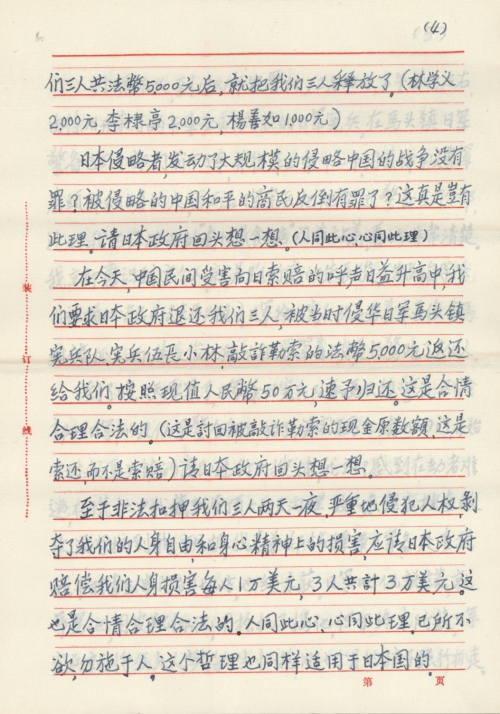 (4)
们三人共法幣5,000元后,就把我们三人释放了(林学义
2,000元,李棣亭2,000元,楊善如1,000元)
日本侵略者,发动了大规模的侵略中国的战争没有
罪?被侵略的中国和平的商民反倒有罪了?这真是岂有
此理。请日本政府回头想一想。(人同此心,心同此理)
在今天,中国民间受害向日索赔的呼声日益升高中,我
们要求日本政府退还我们三人,被当时侵华日军马头镇
宪兵队、宪兵伍長小林,敲詐勒索的法幣5,000元返还
给我们。按照现值人民幣50万元,速予归还。这是合情
合理合法的。(这是討回被敲詐勒索的现金原数額,这是
索还,而不是索赔)请日本政府回头想一想。
至于非法扣押我们三人两天一夜,严重地侵犯人权,剝
夺了我们的人身自由,和身心精神上的损害,应请日本政府
赔偿我们人身损害每人1万美元,3人共計3万美元。这
也是合情合理合法的。人同此心、心同此理。己所不
欲,勿施于人,这个哲理也同样适用于日本国的。
装
订
线
第 页